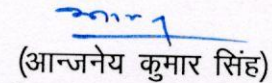 (आन्जनेय कुमार सिंह)